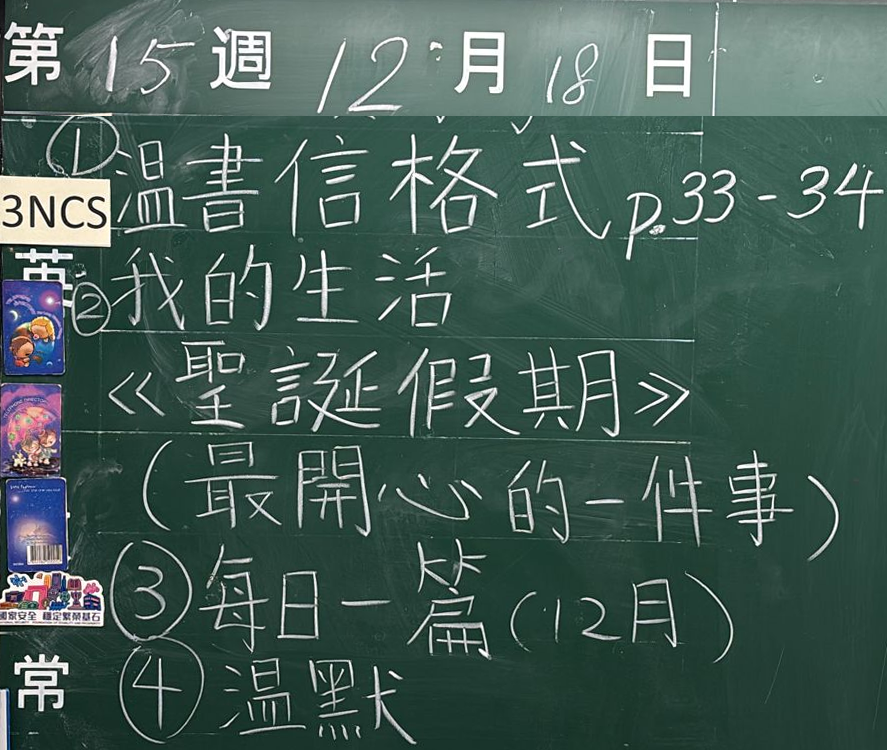 第 15 週 12 月 18 日
① 温書信格式 p.33-34
3NCS
英
② 我的生活
《聖誕假期》
(最開心的一件事)
③ 每日一篇(12月)
國家安全 穩定繁榮基石
常
④ 温默